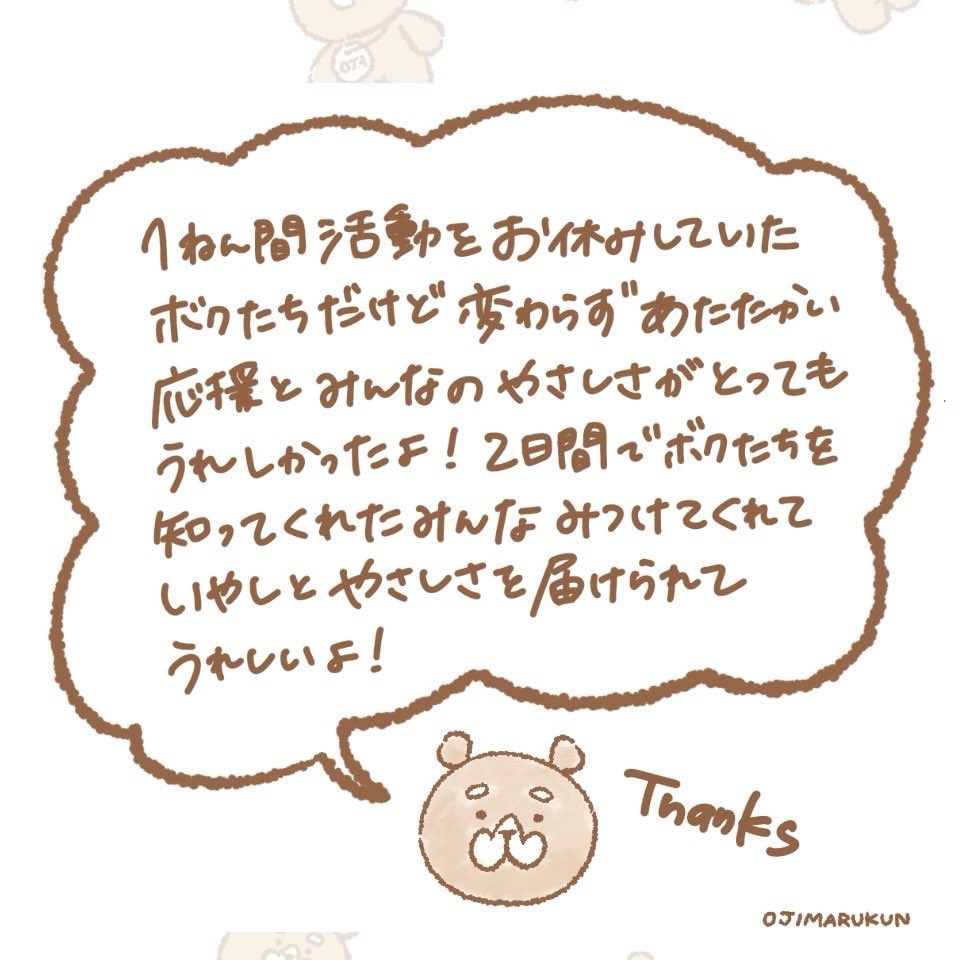 1ねん間活動をお休みしていた
ボクたちだけど変わらずあたたかい
応援とみんなのやさしさがとっても
うれしかったよ！2日間でボクたちを
知ってくれたみんなみつけてくれて
いやしとやさしさを届けられて
うれしいよ！
Thanks
OJIMARUKUN